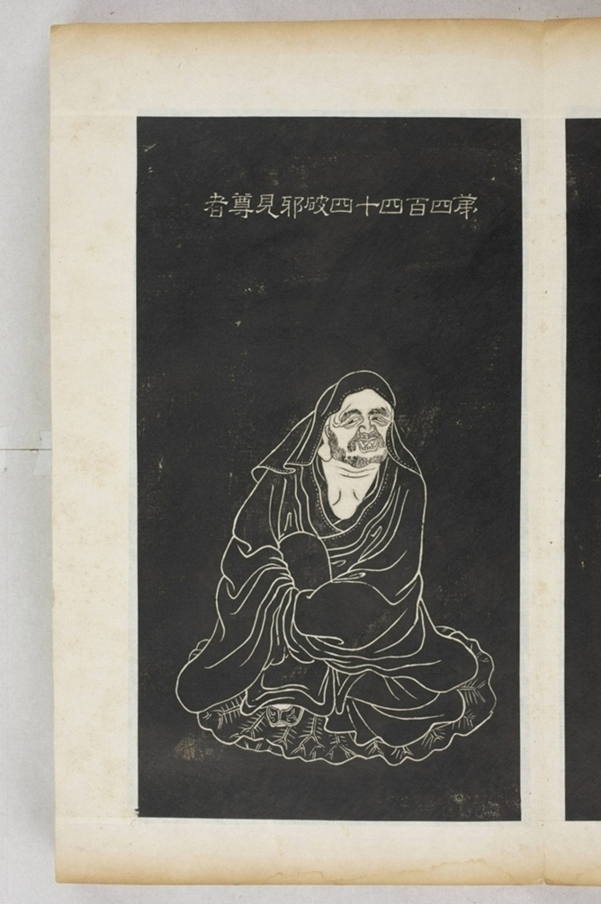 第四百四十四破邪見尊者